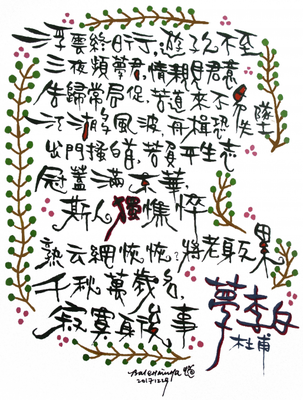 浮雲終日行,遊子久不至
三夜頻夢君,情親見君意
告歸常局促,苦道來不易
江湖多風波,舟楫恐失墜
出門搔白首,若負平生志
冠蓋滿京華,
斯人獨憔悴
孰云網恢恢?將老身反累
千秋萬歲名,
寂寞身後事
夢李白
杜甫
20171229